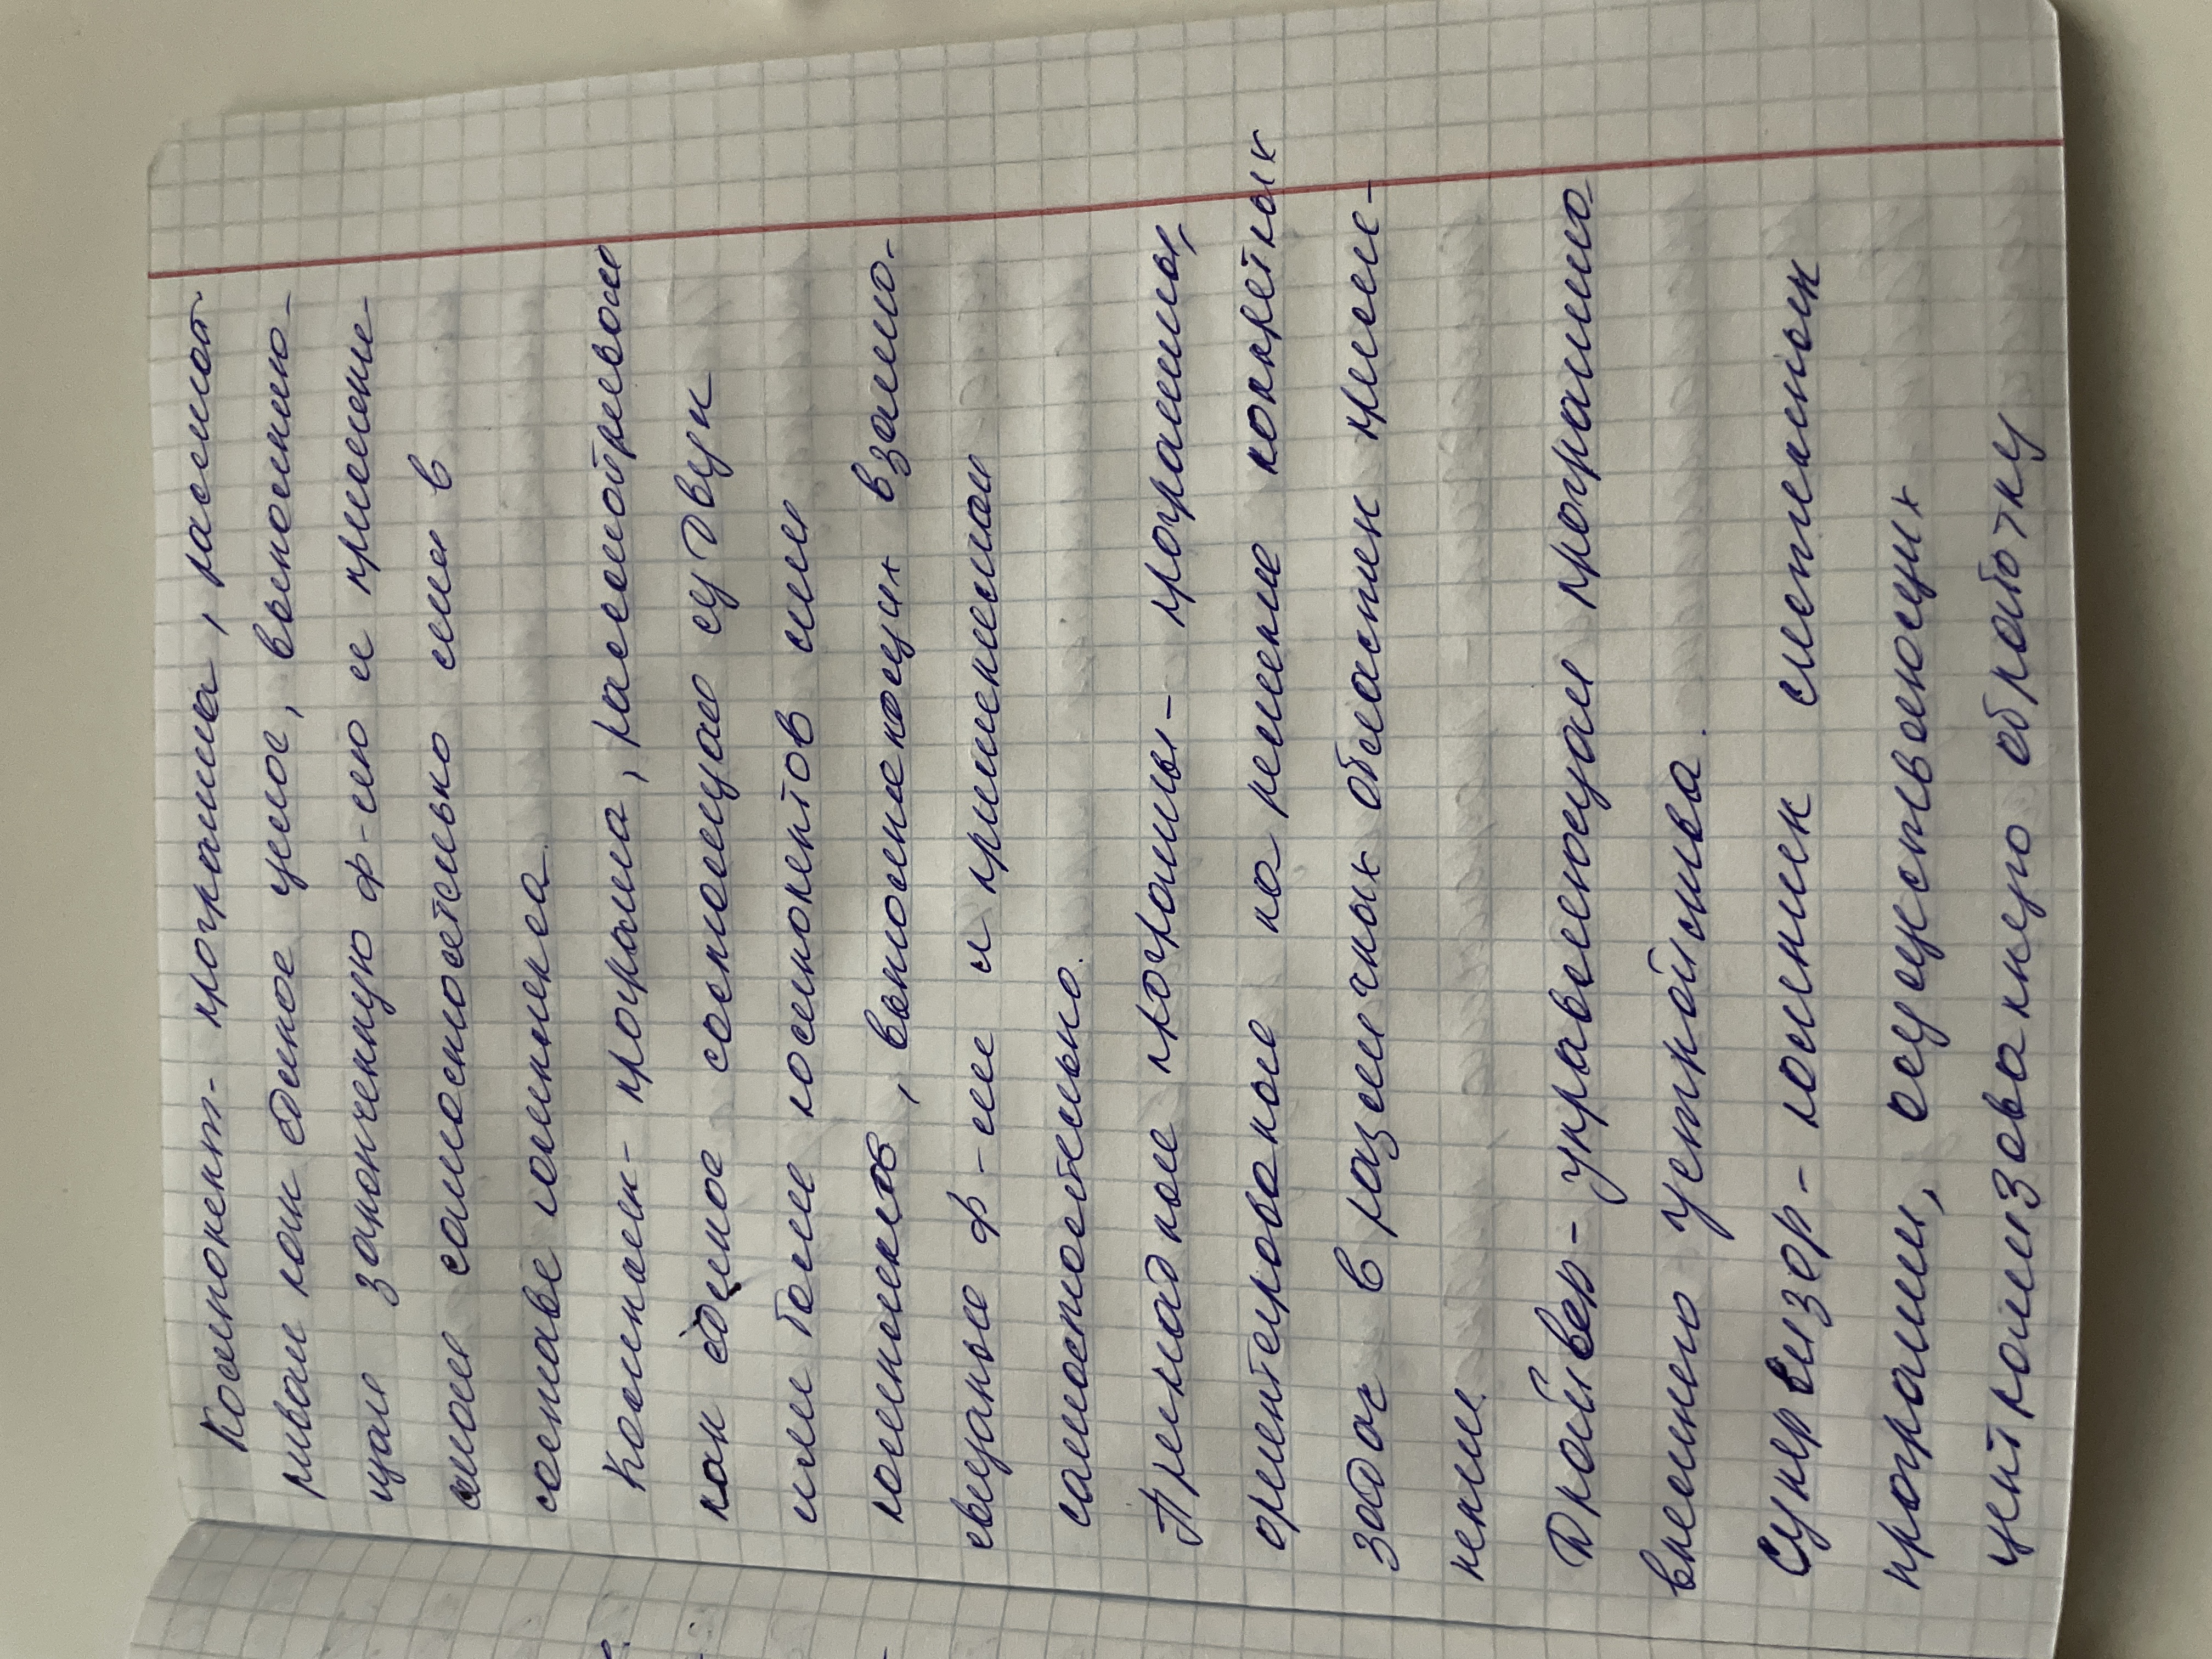 Компонент- программа, рассмат
ривая как единое целое, выполняю-
щая законченную ф-цию и применяе
амая самостоятельно или в
составе комплекса.
Комплекс- програма, рассматриваем
как единое состоящая су двух
или более компонентов или
комплексов, выполняющих взаимо-
связаные ф-ции и применяемая
самостоятельно.
Прикладные программы- программы,
ориентированые на решение конкретных
задач в различных областях приме-
нения
Драйвер- управляющая программа
внешнего устройства.
Супервизор- комплекс системных
програмы, осуществляющих
централизованную обработку